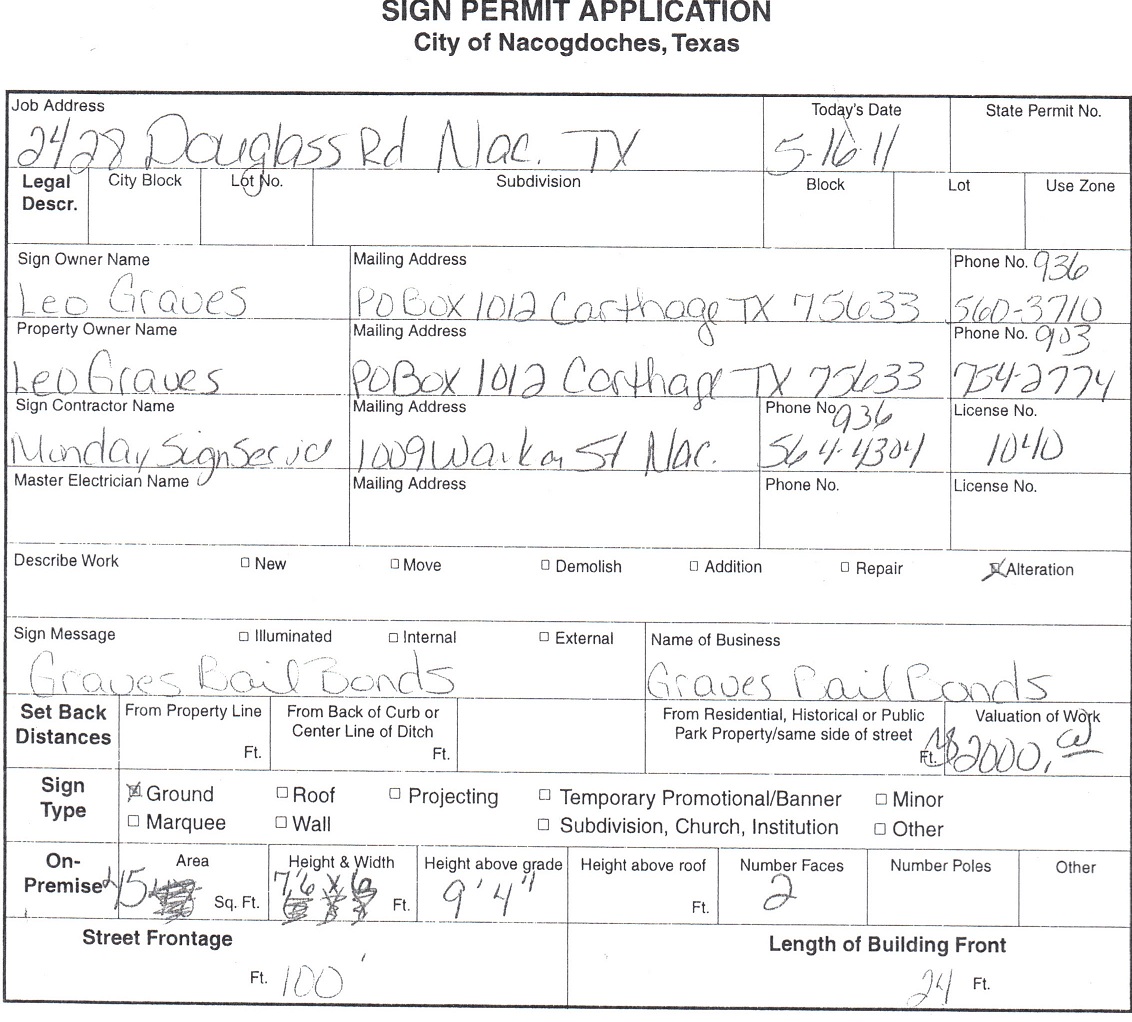 SIGN PERMIT APPLICATION
City of Nacogdoches, Texas
Job Address Today's Date State Permit No.
2428 Douglass Rd Nac. TX 5-16-11
Legal Descr. City Block Lot No. Subdivision Block Lot Use Zone
Sign Owner Name Mailing Address Phone No. 936
Leo Graves PO Box 1012 Carthage TX 75633 560-3710
Property Owner Name Mailing Address Phone No. 903
Leo Graves PO Box 1012 Carthage TX 75633 754-2774
Sign Contractor Name Mailing Address Phone No. 936 License No.
Munday Sign Service 1009 St Nac. 564-4304 1040
Master Electrician Name Mailing Address Phone No. License No.
Describe Work New Move Demolish Addition Repair Alteration
Sign Message Illuminated Internal External Name of Business
Graves Bail Bonds Graves Bail Bonds
Set Back Distances From Property Line Ft. From Back of Curb or Center Line of Ditch Ft. From Residential, Historical or Public Park Property/same side of street Ft. Valuation of Work
$2000,
Sign Type Ground Roof Projecting Temporary Promotional/Banner Minor
Marquee Wall Subdivision, Church, Institution Other
On-Premise Area Height & Width Height above grade Height above roof Number Faces Number Poles Other
45 Sq. Ft. 7'6 x 6 Ft. 9'4" Ft. 2
Street Frontage Length of Building Front
Ft. 100' 24 Ft.